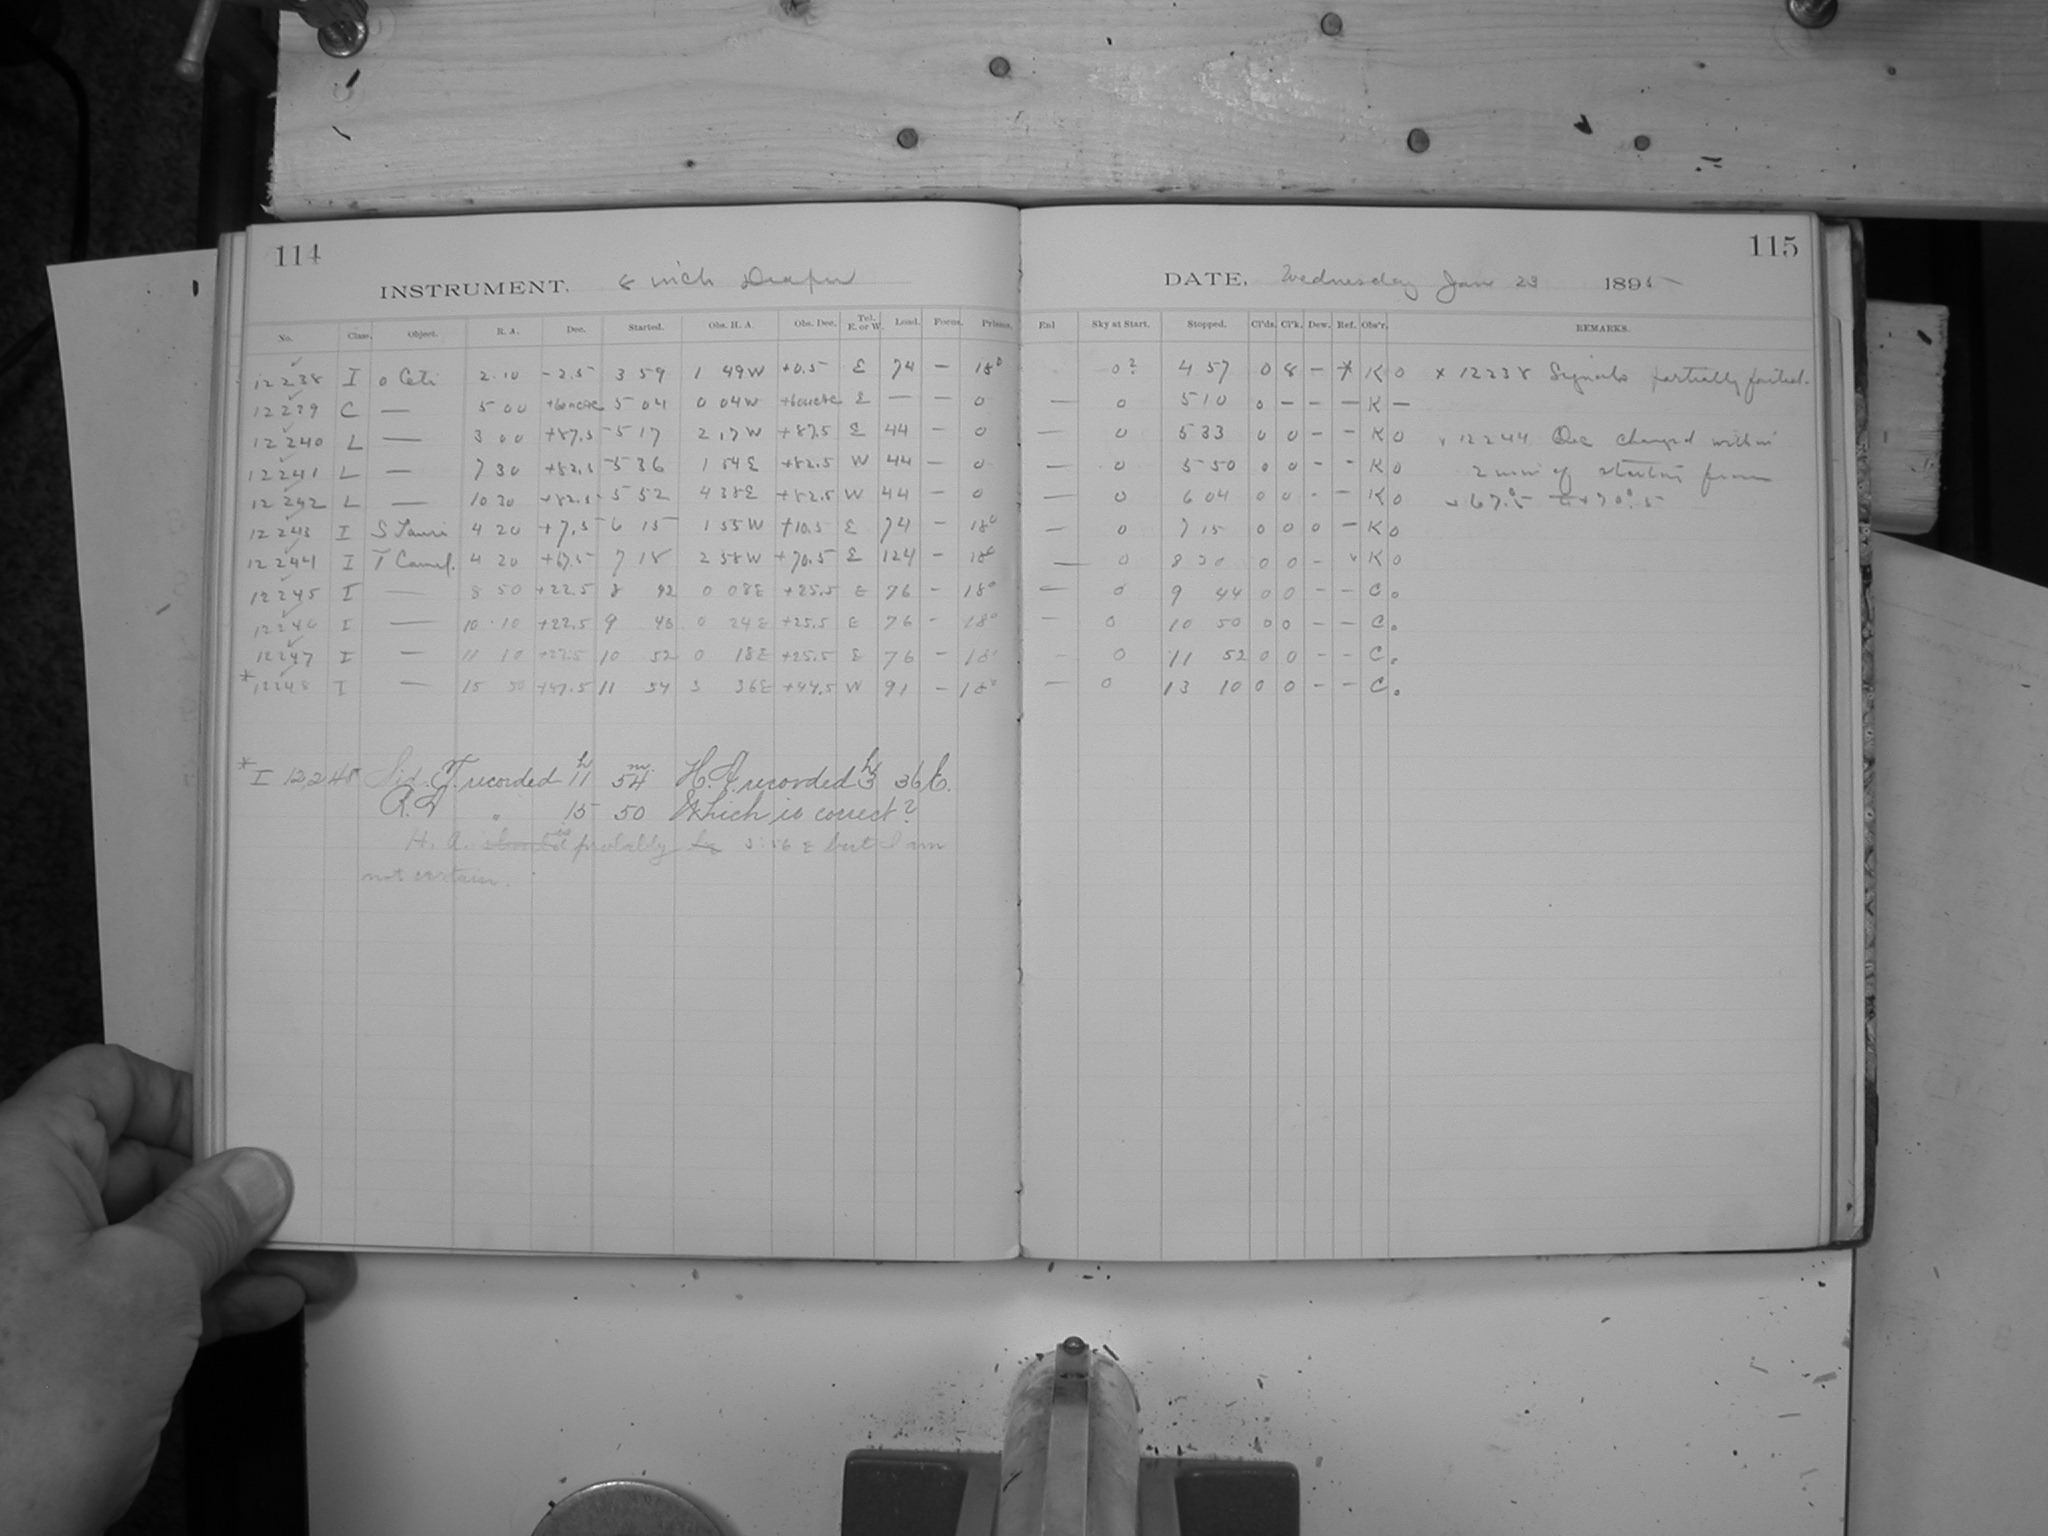 114
INSTRUMENT. 8 inch Draper
No. Class. Object. R. A. Dec. Started. Obs. H. A. Obs. Dec. Tel. E. or W. Load. Focus. Prisms.
12238 I o Ceti 2.10 -2.5 3 59 1 49W +0.5 E 74 - 18°
12239 C — 5 00 5 04 0 04W E — - 0
12240 L — 3 00 +87.5 5 17 2 17W +87.5 E 44 - 0
12241 L — 7 30 +82.5 5 36 1 54E +82.5 W 44 - 0
12242 L — 10 30 +82.5 5 52 4 38E +82.5 W 44 - 0
12243 I S Tauri 4 20 +7.5 6 15 1 55W +10.5 E 74 - 18°
12244 I T Camel. 4 20 +67.5 7 18 2 58W +70.5 E 124 - 18°
12245 I — 8 50 +22.5 8 42 0 08E +25.5 E 76 - 18°
12246 I — 10 10 +22.5 9 46 0 24E +25.5 E 76 - 18°
12247 I — 11 10 +22.5 10 52 0 18E +25.5 E 76 - 18°
*12248 I — 15 50 +47.5 11 54 3 36E +44.5 W 91 - 18°
* I 12248 Sid. T. recorded 11h 54m. H. A. recorded 3h 36E.
R.A " 15 50 Which is correct?
H. A. should was probably be 3:56 E but I am
not certain.
115
DATE. Wednesday Jan 23 1895
Enl Sky at Start. Stopped. Cl'ds. Cl'k. Dew. Ref. Obs'r. REMARKS.
0? 4 57 0 8 - * K 0 x 12238 Signals partially failed.
— 0 5 10 0 - - - K —
— 0 5 33 0 0 - - K 0 x 12244 Dec changed within
— 0 5 50 0 0 - - K 0 2 min of starting from
— 0 6 04 0 0 - - K 0 +67°.5 to +70°.5
— 0 7 15 0 0 0 - K 0
— 0 8 20 0 0 - x K 0
— 0 9 44 0 0 - - C 0
— 0 10 50 0 0 - - C 0
- 0 11 52 0 0 - - C 0
— 0 13 10 0 0 - - C 0